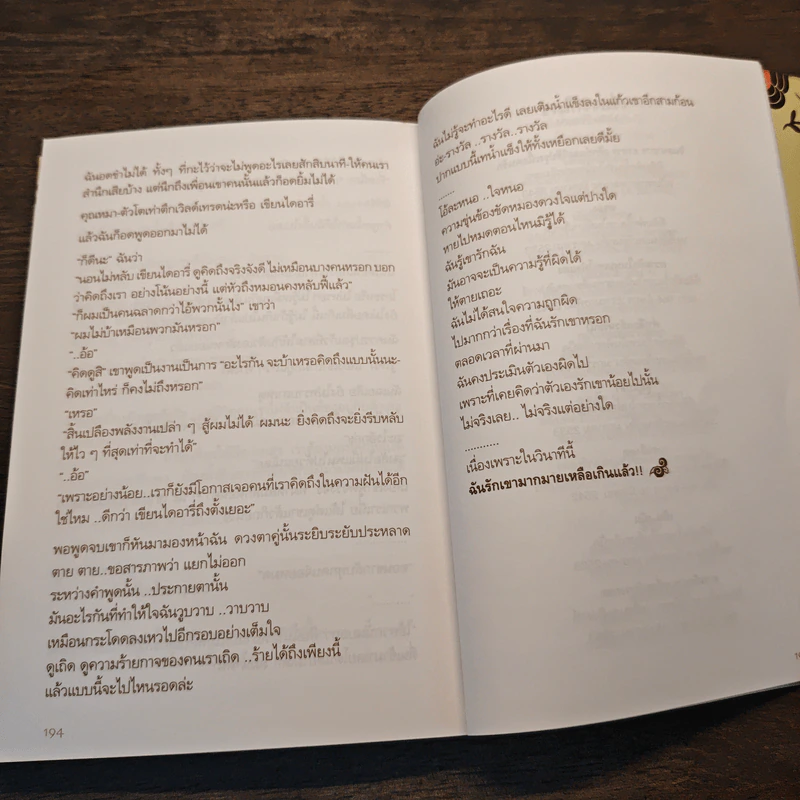 ฉันอดขำไม่ได้ ทั้งๆ ที่กะไว้ว่าจะไม่พูดอะไรเลยสักสิบนาที-ให้คนเรา
สำนึกเสียบ้าง แต่นึกถึงเพื่อนเขาคนนั้นแล้วก็อดยิ้มไม่ได้
คุณหมา-ตัวโตเท่าตึกเวิลด์เทรดน่ะหรือ เขียนไดอารี่
แล้วฉันก็อดพูดออกมาไม่ได้
“ก็ดีนะ” ฉันว่า
“นอนไม่หลับ เขียนไดอารี่ ดูคิดถึงจริงจังดี ไม่เหมือนบางคนหรอก บอก
ว่าคิดถึงเรา อย่างโน้นอย่างนี้ แต่หัวถึงหมอนคงหลับฟี้แล้ว”
“ก็ผมเป็นคนฉลาดกว่าไอ้พวกนั้นไง” เขาว่า
“ผมไม่บ้าเหมือนพวกมันหรอก”
“..อ้อ”
“คิดดูสิ” เขาพูดเป็นงานเป็นการ “อะไรกัน จะบ้าเหรอคิดถึงแบบนั้นนะ-
คิดเท่าไหร่ ก็คงไม่ถึงหรอก”
“เหรอ”
“สิ้นเปลืองพลังงานเปล่า ๆ สู้ผมไม่ได้ ผมนะ ยิ่งคิดถึงจะยิ่งรีบหลับ
ให้ไว ๆ ที่สุดเท่าที่จะทำได้”
“..อ้อ”
“เพราะอย่างน้อย..เราก็ยังมีโอกาสเจอคนที่เราคิดถึงในความฝันได้อีก
ใช่ไหม ..ดีกว่า เขียนไดอารี่ถึงตั้งเยอะ”
พอพูดจบเขาก็หันมามองหน้าฉัน ดวงตาคู่นั้นระยิบระยับประหลาด
ตาย ตาย..ขอสารภาพว่า แยกไม่ออก
ระหว่างคำพูดนั้น ..ประกายตานั้น
มันอะไรกันที่ทำให้ใจฉันวูบวาบ ..วาบวาบ
เหมือนกระโดดลงเหวไปอีกรอบอย่างเต็มใจ
ดูเถิด ดูความร้ายกาจของคนเราเถิด ..ร้ายได้ถึงเพียงนี้
แล้วแบบนี้จะไปไหนรอดล่ะ
194
ฉันไม่รู้จะทำอะไรดี เลยเติมน้ำแข็งลงในแก้วเขาอีกสามก้อน
อ่ะ-รางวัล ..รางวัล..รางวัล
ปากแบบนี้เทน้ำแข็งให้ทั้งเหยือกเลยดีมั้ย
.......
โอ้ละหนอ ..ใจหนอ
ความขุ่นข้องขัดหมองดวงใจแต่ปางใด
หายไปหมดตอนไหนมิรู้ได้
ฉันรู้เขารักฉัน
มันอาจจะเป็นความรู้ที่ผิดได้
ให้ตายเถอะ
ฉันไม่ได้สนใจความถูกผิด
ไปมากกว่าเรื่องที่ฉันรักเขาหรอก
ตลอดเวลาที่ผ่านมา
ฉันคงประเมินตัวเองผิดไป
เพราะที่เคยคิดว่าตัวเองรักเขาน้อยไปนั้น
ไม่จริงเลย.. ไม่จริงแต่อย่างใด
..........
เนื่องเพราะในวินาทีนี้
ฉันรักเขามากมายเหลือเกินแล้ว!!